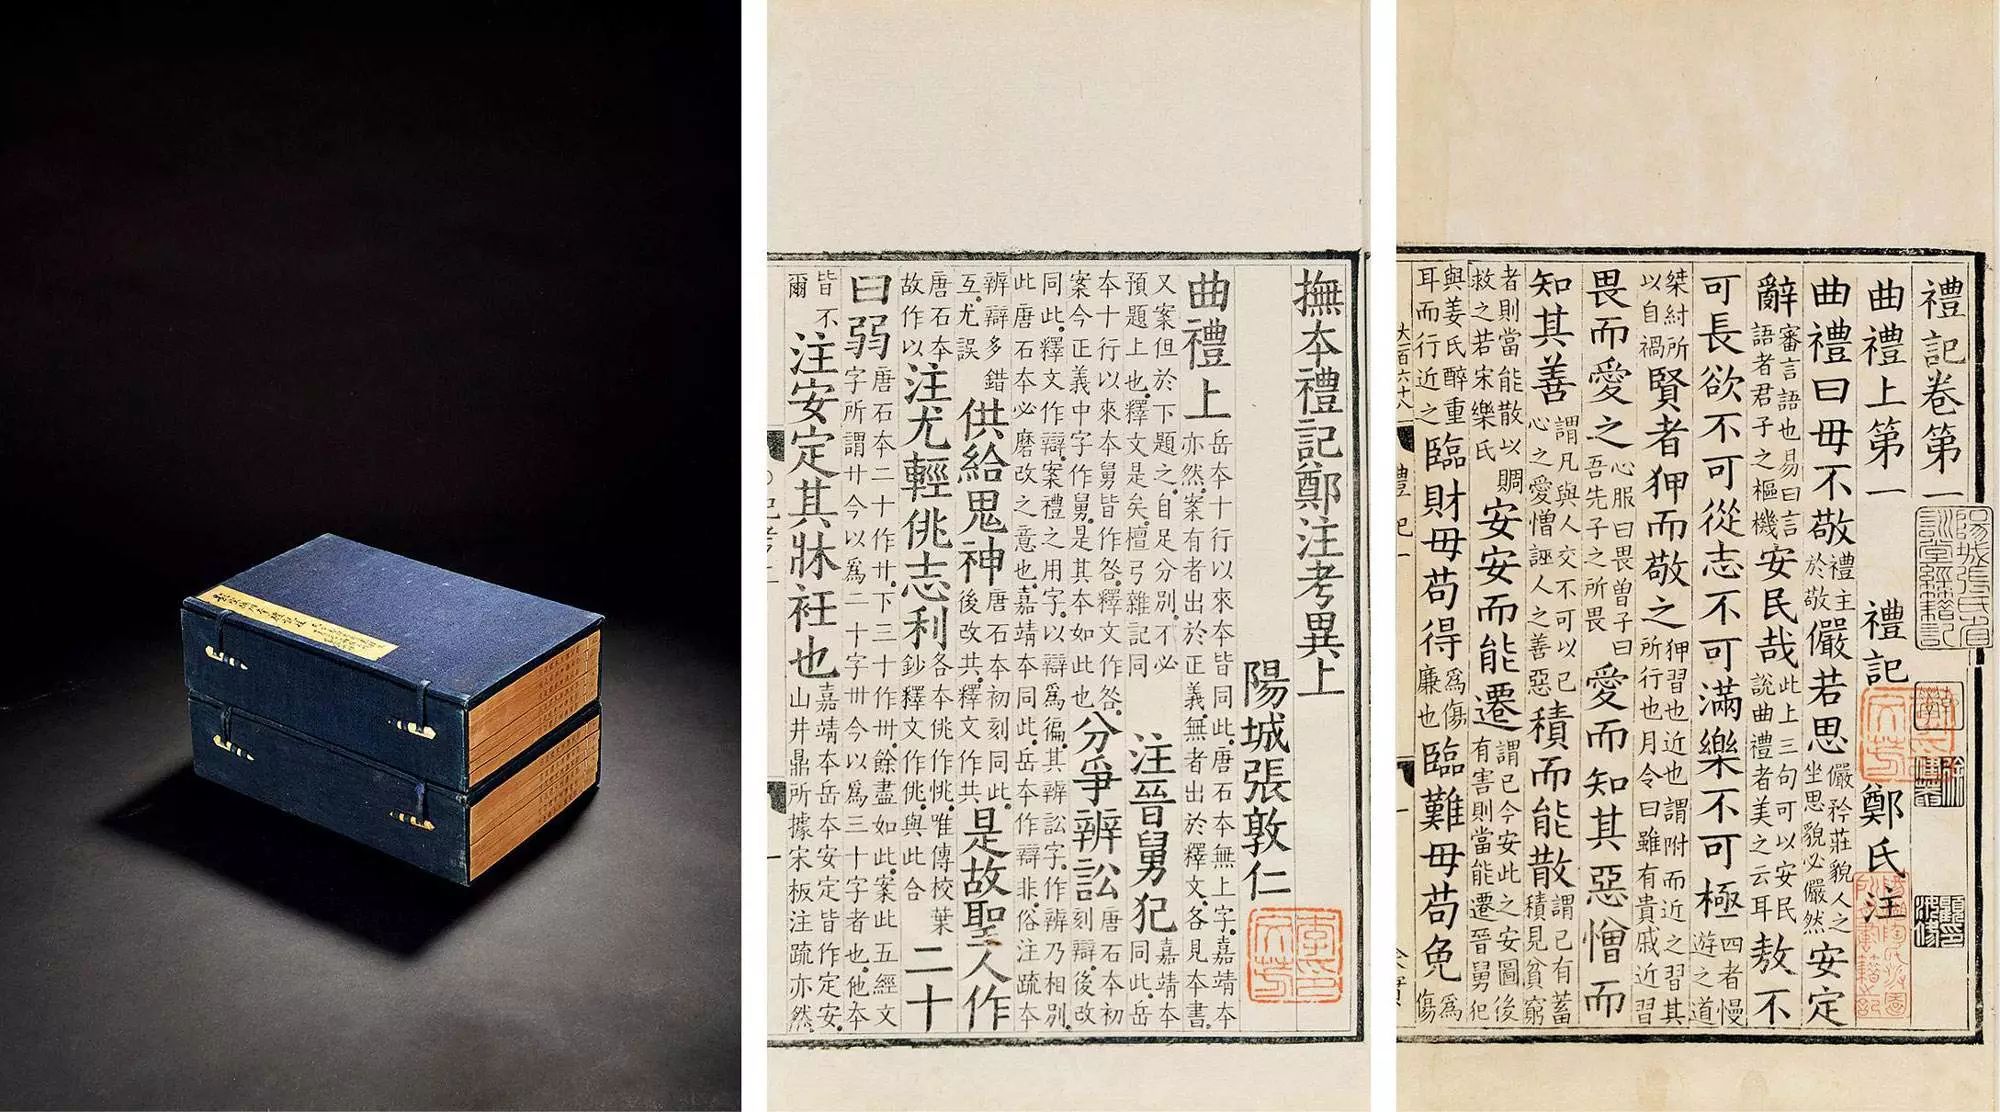 撫本禮記鄭注考異上
陽城張敦仁
曲禮上岳本十行以來本皆同此唐石本無上字嘉靖本亦然案有者出於正義無者出於釋文各見本書
又案但於下題之自足分別不必預題上也釋文是矣檀弓雜記同注晉舅犯嘉靖本同此岳
本十行以來本舅皆作咎釋文作咎案今正義中字作舅是其本如此也分爭辨訟唐石本初刻辯後改
同此釋文作辯案禮之用字以辯為徧其辨訟字作辨乃相別此唐石本必磨改之意也嘉靖本同此岳本作辯非俗注疏本
辨辯多錯互尤誤供給鬼神唐石本初刻同此後改共釋文作共是故聖人作
唐石本故作以注尤輕佻志利各本佻作恌唯傳校葉鈔釋文作佻與此合二十
曰弱唐石本二十作廿下三十作丗餘盡如此案此五經文字所謂廿今以為二十字丗今以為三十字者也他本
皆不爾注安定其牀衽也嘉靖本岳本安定皆作定安山井鼎所據宋板注疏亦然
禮記卷第一
陽城張氏省訓堂經籍記
曲禮上第一 禮記 鄭氏注
曲禮曰毋不敬禮主於敬儼若思儼矜莊貌人之坐思貌必儼然安定
辭審言語也易曰言語者君子之樞機安民哉此上三句可以安民說曲禮者美之云耳敖不
可長欲不可從志不可滿樂不可極四者慢遊之道
桀紂所以自禍賢者狎而敬之狎習也近也謂附而近之習其所行也月令曰雖有貴戚近習
畏而愛之心服曰畏曾子曰吾先子之所畏愛而知其惡憎而
知其善謂凡與人交不可以己心之愛憎誣人之善惡積而能散謂己有蓄積見貧窮
者則當能散以賙救之若宋樂氏安安而能遷謂己今安此之安圖後有害則當能遷晉舅犯
與姜氏醉重耳而行近之臨財毋苟得為傷廉也臨難毋苟免為傷
禮記一